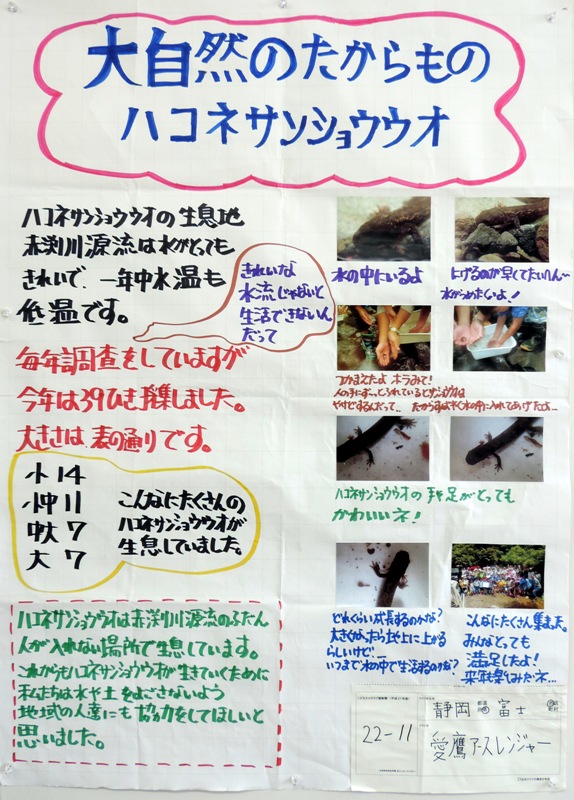 大自然のたからもの
ハコネサンショウウオ
ハコネサンショウウオの生息地
赤渕川源流は水がとても
きれいで、一年中水温も
低温です。
きれいな
水流じゃないと
生活できないん
だって
毎年調査をしていますが
今年は39ひき採集しました。
大きさは、表の通りです。
小 14
小中 11
中大 7
大 7
こんなにたくさんの
ハコネサンショウウオが
生息していました。
ハコネサンショウウオは赤渕川源流のふだん
人が入れない場所で生息しています。
これからもハコネサンショウウオが生きていくために
私たちは水や土をよごさないよう
地域の人達にも協力をしてほしいと
思いました。
水の中にいるよ
にげるのが早くてたいへん〜
水がつめたいよ!
つかまえたよ ホラみて!
人の手にずーっとふれているとサンショウウオは
やけどするんだって‥だからすばやく水の中に入れてあげたよ‥
ハコネサンショウウオの手足がとっても
かわいいネ!
どれくらい成長するのかな?
大きくなったら地上に上がる
らしいけど‥
いつまで水の中で生活するのかな?
こんなにたくさん集まった。
みんなとっても
満足したよ!
来年も楽しみだネ‥
22-11
静岡 富士
愛鷹アースレンジャー